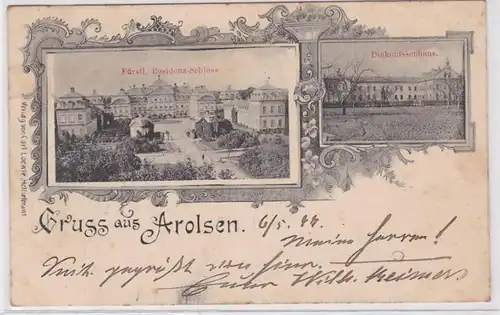 Fürstl. Residenz-Schloss
Diakonissenhaus.
Verlag von Carl
Gruss aus Arolsen.
Meine Herren!
gegrüßt von hier.
Euer Wilh. Reimers